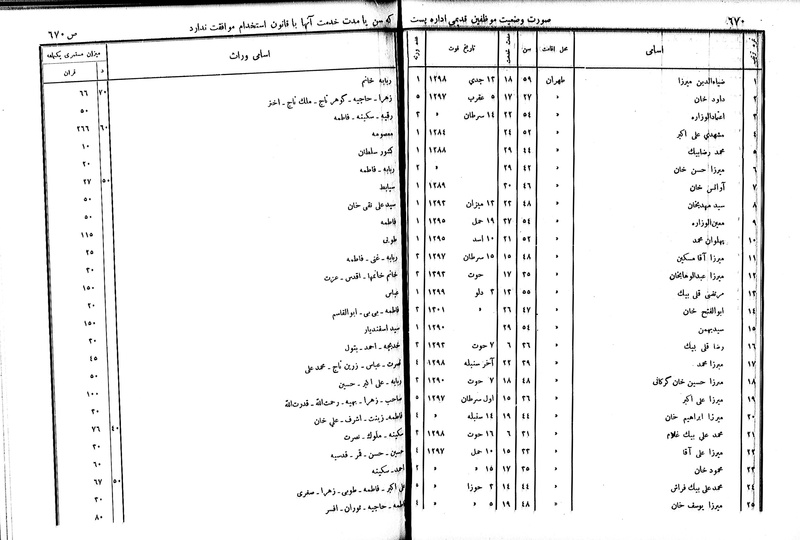 ۶۷۰ صورت وضعیت موظفین قدیمی اداره پست که سن یا مدت خدمت آنها با قانون استخدام موافقت ندارد ص ۶۷۰
نمره ترتیب اسامی محل اقامت سن مدت خدمت تاریخ فوت عده ورثه اسامی وراث میزان مستمری یکماهه
قران د
۱ ضیاءالدین میرزا طهران ۵۹ ۱۸ ۱۲ جدی ۱۲۹۸ ۱ ربابه خانم
۲ داود خان » ۲۷ ۱۷ ۵ عقرب ۱۲۹۷ ۵ زهرا ـ حاجیه ـ گوهر تاج ـ ملک تاج ـ اختر ۶۶ ۷۰
۳ اعتمادالوزاره » ۵۴ ۲۲ ۱۴ سرطان » ۳ رقیه ـ سکینه ـ فاطمه ۵۰
۴ مشهدی علی اکبر » ۵۲ ۲۴ ۱۲۸۴ ۱ معصومه ۲۶۶ ۶۰
۵ محمد رضابیک » ۴۴ ۲۹ ۱۲۸۸ ۱ کشور سلطان ۱۰
۶ میرزا حسن خان » ۴۲ ۲۹ » ۲ ربابه ـ فاطمه ۲۰
۷ آوانس خان » ۴۶ ۳۰ ۱۲۸۹ ۱ ۲۷ ۵۰
۸ سید مهدیخان » ۴۸ ۲۲ ۱۲ میزان ۱۲۹۳ ۱ سید علی نقی خان ۵۰
۹ معین‌الوزاره » ۵۴ ۲۷ ۱۹ حمل ۱۲۹۵ ۱ فاطمه ۵۰
۱۰ پهلوان محمد » ۵۲ ۲۱ ۱۰ اسد ۱۲۹۵ ۱ طوبی ۱۱۵
۱۱ میرزا آقا مسکین » ۴۸ ۱۵ ۱۵ سرطان ۱۲۹۷ ۲ ربابه ـ غنی ـ فاطمه ۲۵
۱۲ میرزا عبدالوهابخان » ۳۵ ۱۷ حوت ۱۲۹۳ ۳ خانم خانمها ـ اقدس ـ عزت ۳۰
۱۳ مرتضی قلی بیک » ۵۵ ۱۳ ۳ دلو ۱۲۹۹ ۱ عباس ۱۵۰
۱۴ ابوالفتح خان » ۴۷ ۲۶ » ۱۳۰۱ ۳ فاطمه ـ بی بی ـ ابوالقاسم ۲۰
۱۵ سیدبهمن » ۵۴ ۲۹ ۱۲۹۰ ۱ سید اسفندیار ۱۵۰
۱۶ رضا قلی بیک » ۳۶ ۶ ۷ حوت ۱۲۹۳ ۳ خدیجه ـ احمد ـ بتول ۲۰
۱۷ میرزا محمد » ۳۹ ۲۲ آخر سنبله ۱۲۹۸ ۴ نصرت ـ عباس ـ زرین تاج ـ محمد علی ۴۵
۱۸ میرزا حسین خان گرکانی » ۴۸ ۱۸ ۷ حوت ۱۲۹۰ ۳ ربابه ـ علی اکبر ـ حسین ۵۰
۱۹ میرزا علی اکبر » ۲۶ ۱۵ اول سرطان ۱۲۹۷ ۵ صاحب ـ زهرا ـ بهیه ـ رحمت‌الله ـ قدرت‌الله ۱۰۰
۲۰ میرزا ابراهیم خان » ۴۴ ۱۹ ۱۴ سنبله » ۴ فاطمه ـ زینت ـ اشرف ـ علی خان ۲۰
۲۱ محمد علی بیک غلام » ۳۱ ۶ ۱۶ حوت ۱۲۹۸ ۳ سکینه ـ ملوک ـ نصرت ۷۶ ۴۰
۲۲ میرزا علی آقا » ۳۳ ۱۵ ۱۰ حمل ۱۲۹۷ ۴ حسین ـ حسن ـ قمر ـ قدسیه ۲۰
۲۳ محمود خان » ۳۵ ۱۷ ۱۵ » » ۲ احمد ـ سکینه ۶۰
۲۴ محمد علی بیک فراش » ۴۴ ۱۴ ۳ جوزا » ۵ علی اکبر ـ فاطمه ـ طوبی ـ زهرا ـ صغری ۶۷ ۵۰
۲۵ میرزا یوسف خان » ۴۸ ۱۹ ۵ » » ۴ فاطمه ـ حاجیه ـ توران ـ افسر ۲۰
۸۰